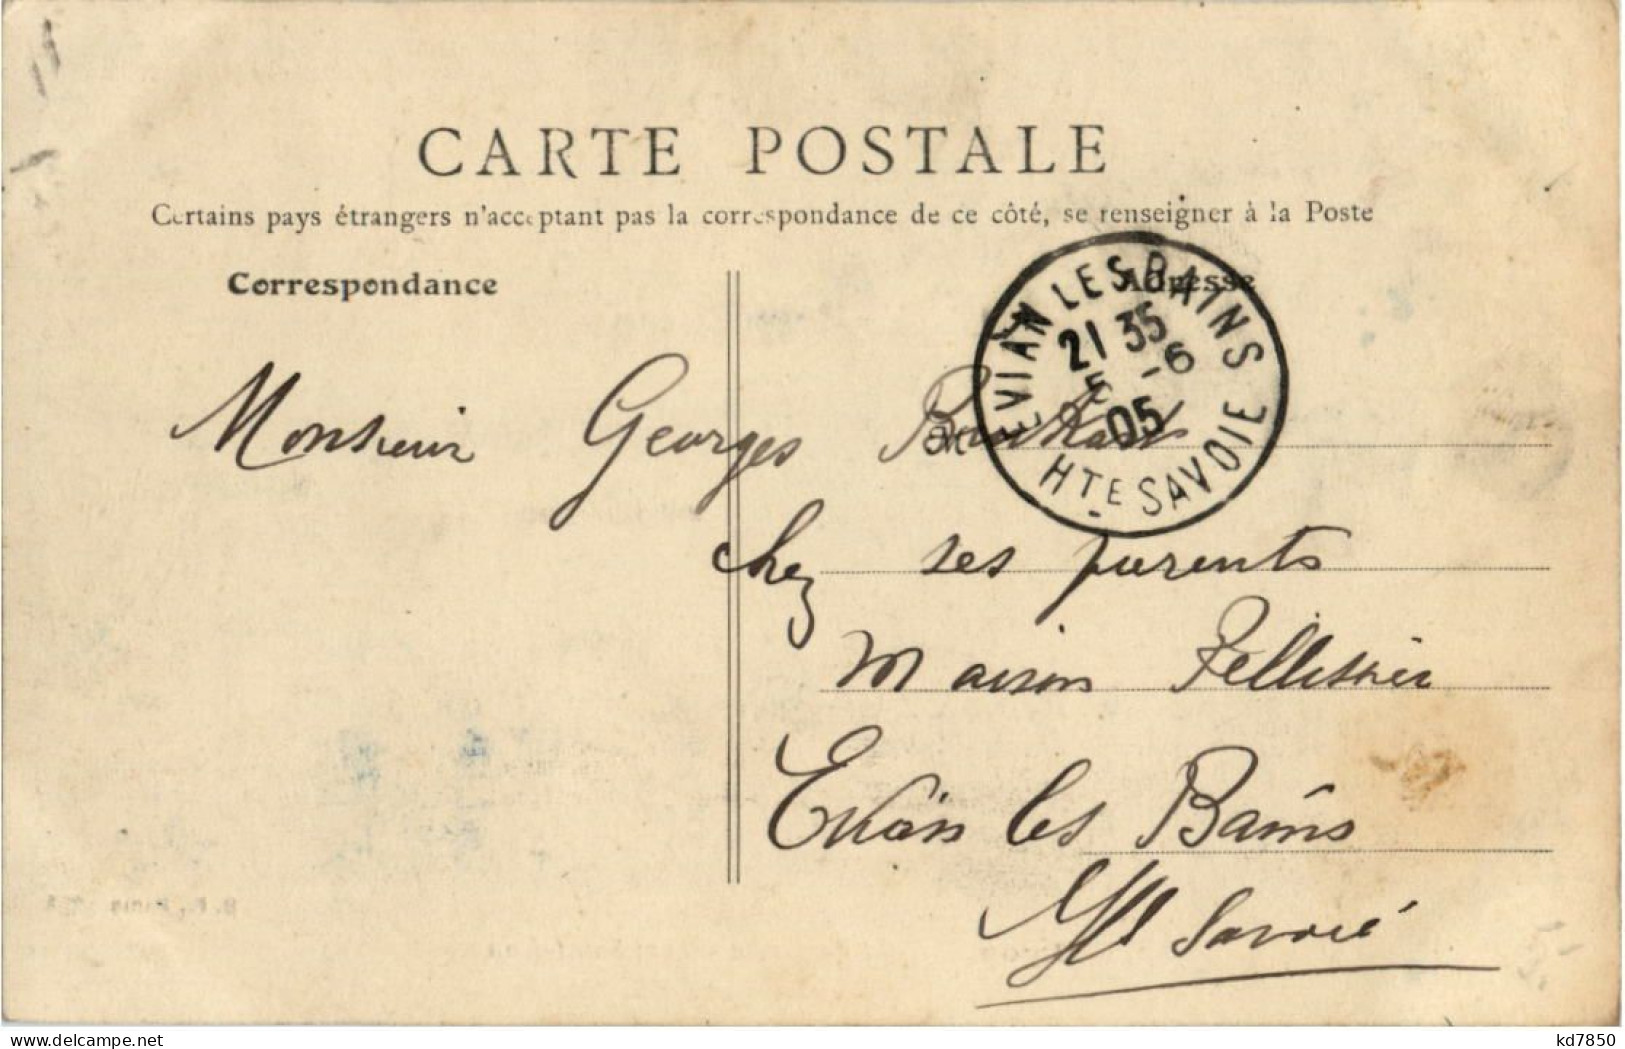 CARTE POSTALE
Certains pays étrangers n'acceptant pas la correspondance de ce côté, se renseigner à la Poste
Correspondance
Adresse
EVIAN LES BAINS
21 35
5 -6
05
HTE SAVOIE
Monsieur Georges
chez ses parents
maison Pellissier
Evian les Bains
Hte Savoie
delcampe.net
kd7850